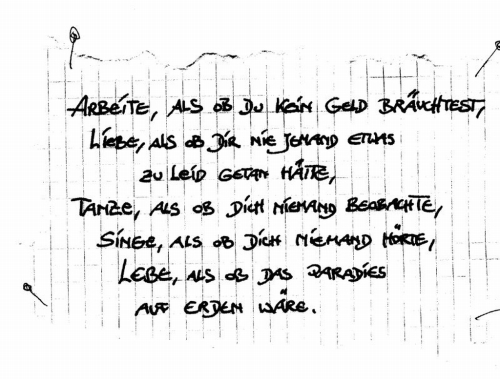 ARBEITE, ALS OB DU KEIN GELD BRÄUCHTEST,
LIEBE, ALS OB DIR NIE JEMAND ETWAS
ZU LEID GETAN HÄTTE,
TANZE, ALS OB DICH NIEMAND BEOBACHTE,
SINGE, ALS OB DICH NIEMAND HÖRTE,
LEBE, ALS OB DAS PARADIES
AUF ERDEN WÄRE.